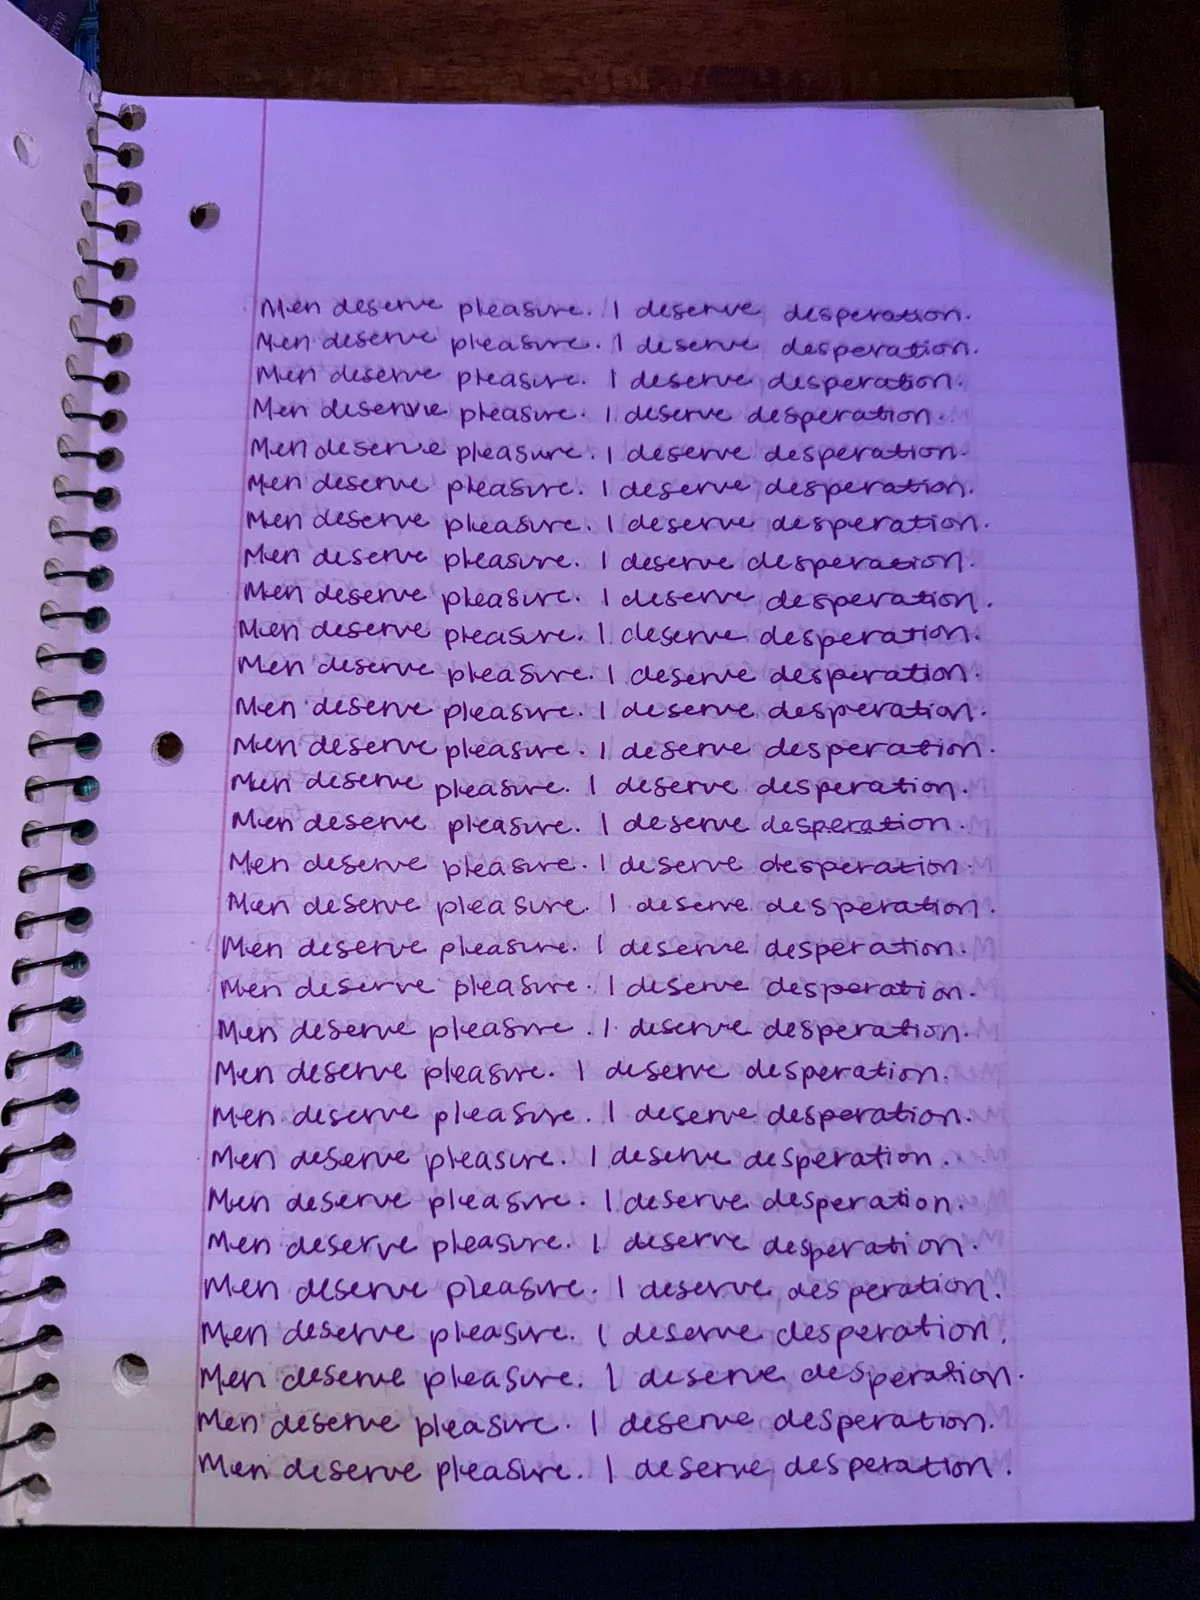 Men deserve pleasure. I deserve desperation.
Men deserve pleasure. I deserve desperation.
Men deserve pleasure. I deserve desperation.
Men deserve pleasure. I deserve desperation.
Men deserve pleasure. I deserve desperation.
Men deserve pleasure. I deserve desperation.
Men deserve pleasure. I deserve desperation.
Men deserve pleasure. I deserve desperation.
Men deserve pleasure. I deserve desperation.
Men deserve pleasure. I deserve desperation.
Men deserve pleasure. I deserve desperation.
Men deserve pleasure. I deserve desperation.
Men deserve pleasure. I deserve desperation.
Men deserve pleasure. I deserve desperation.
Men deserve pleasure. I deserve desperation.
Men deserve pleasure. I deserve desperation.
Men deserve pleasure. I deserve desperation.
Men deserve pleasure. I deserve desperation.
Men deserve pleasure. I deserve desperation.
Men deserve pleasure. I deserve desperation.
Men deserve pleasure. I deserve desperation.
Men deserve pleasure. I deserve desperation.
Men deserve pleasure. I deserve desperation.
Men deserve pleasure. I deserve desperation.
Men deserve pleasure. I deserve desperation.
Men deserve pleasure. I deserve desperation.
Men deserve pleasure. I deserve desperation.
Men deserve pleasure. I deserve desperation.
Men deserve pleasure. I deserve desperation.
Men deserve pleasure. I deserve desperation.